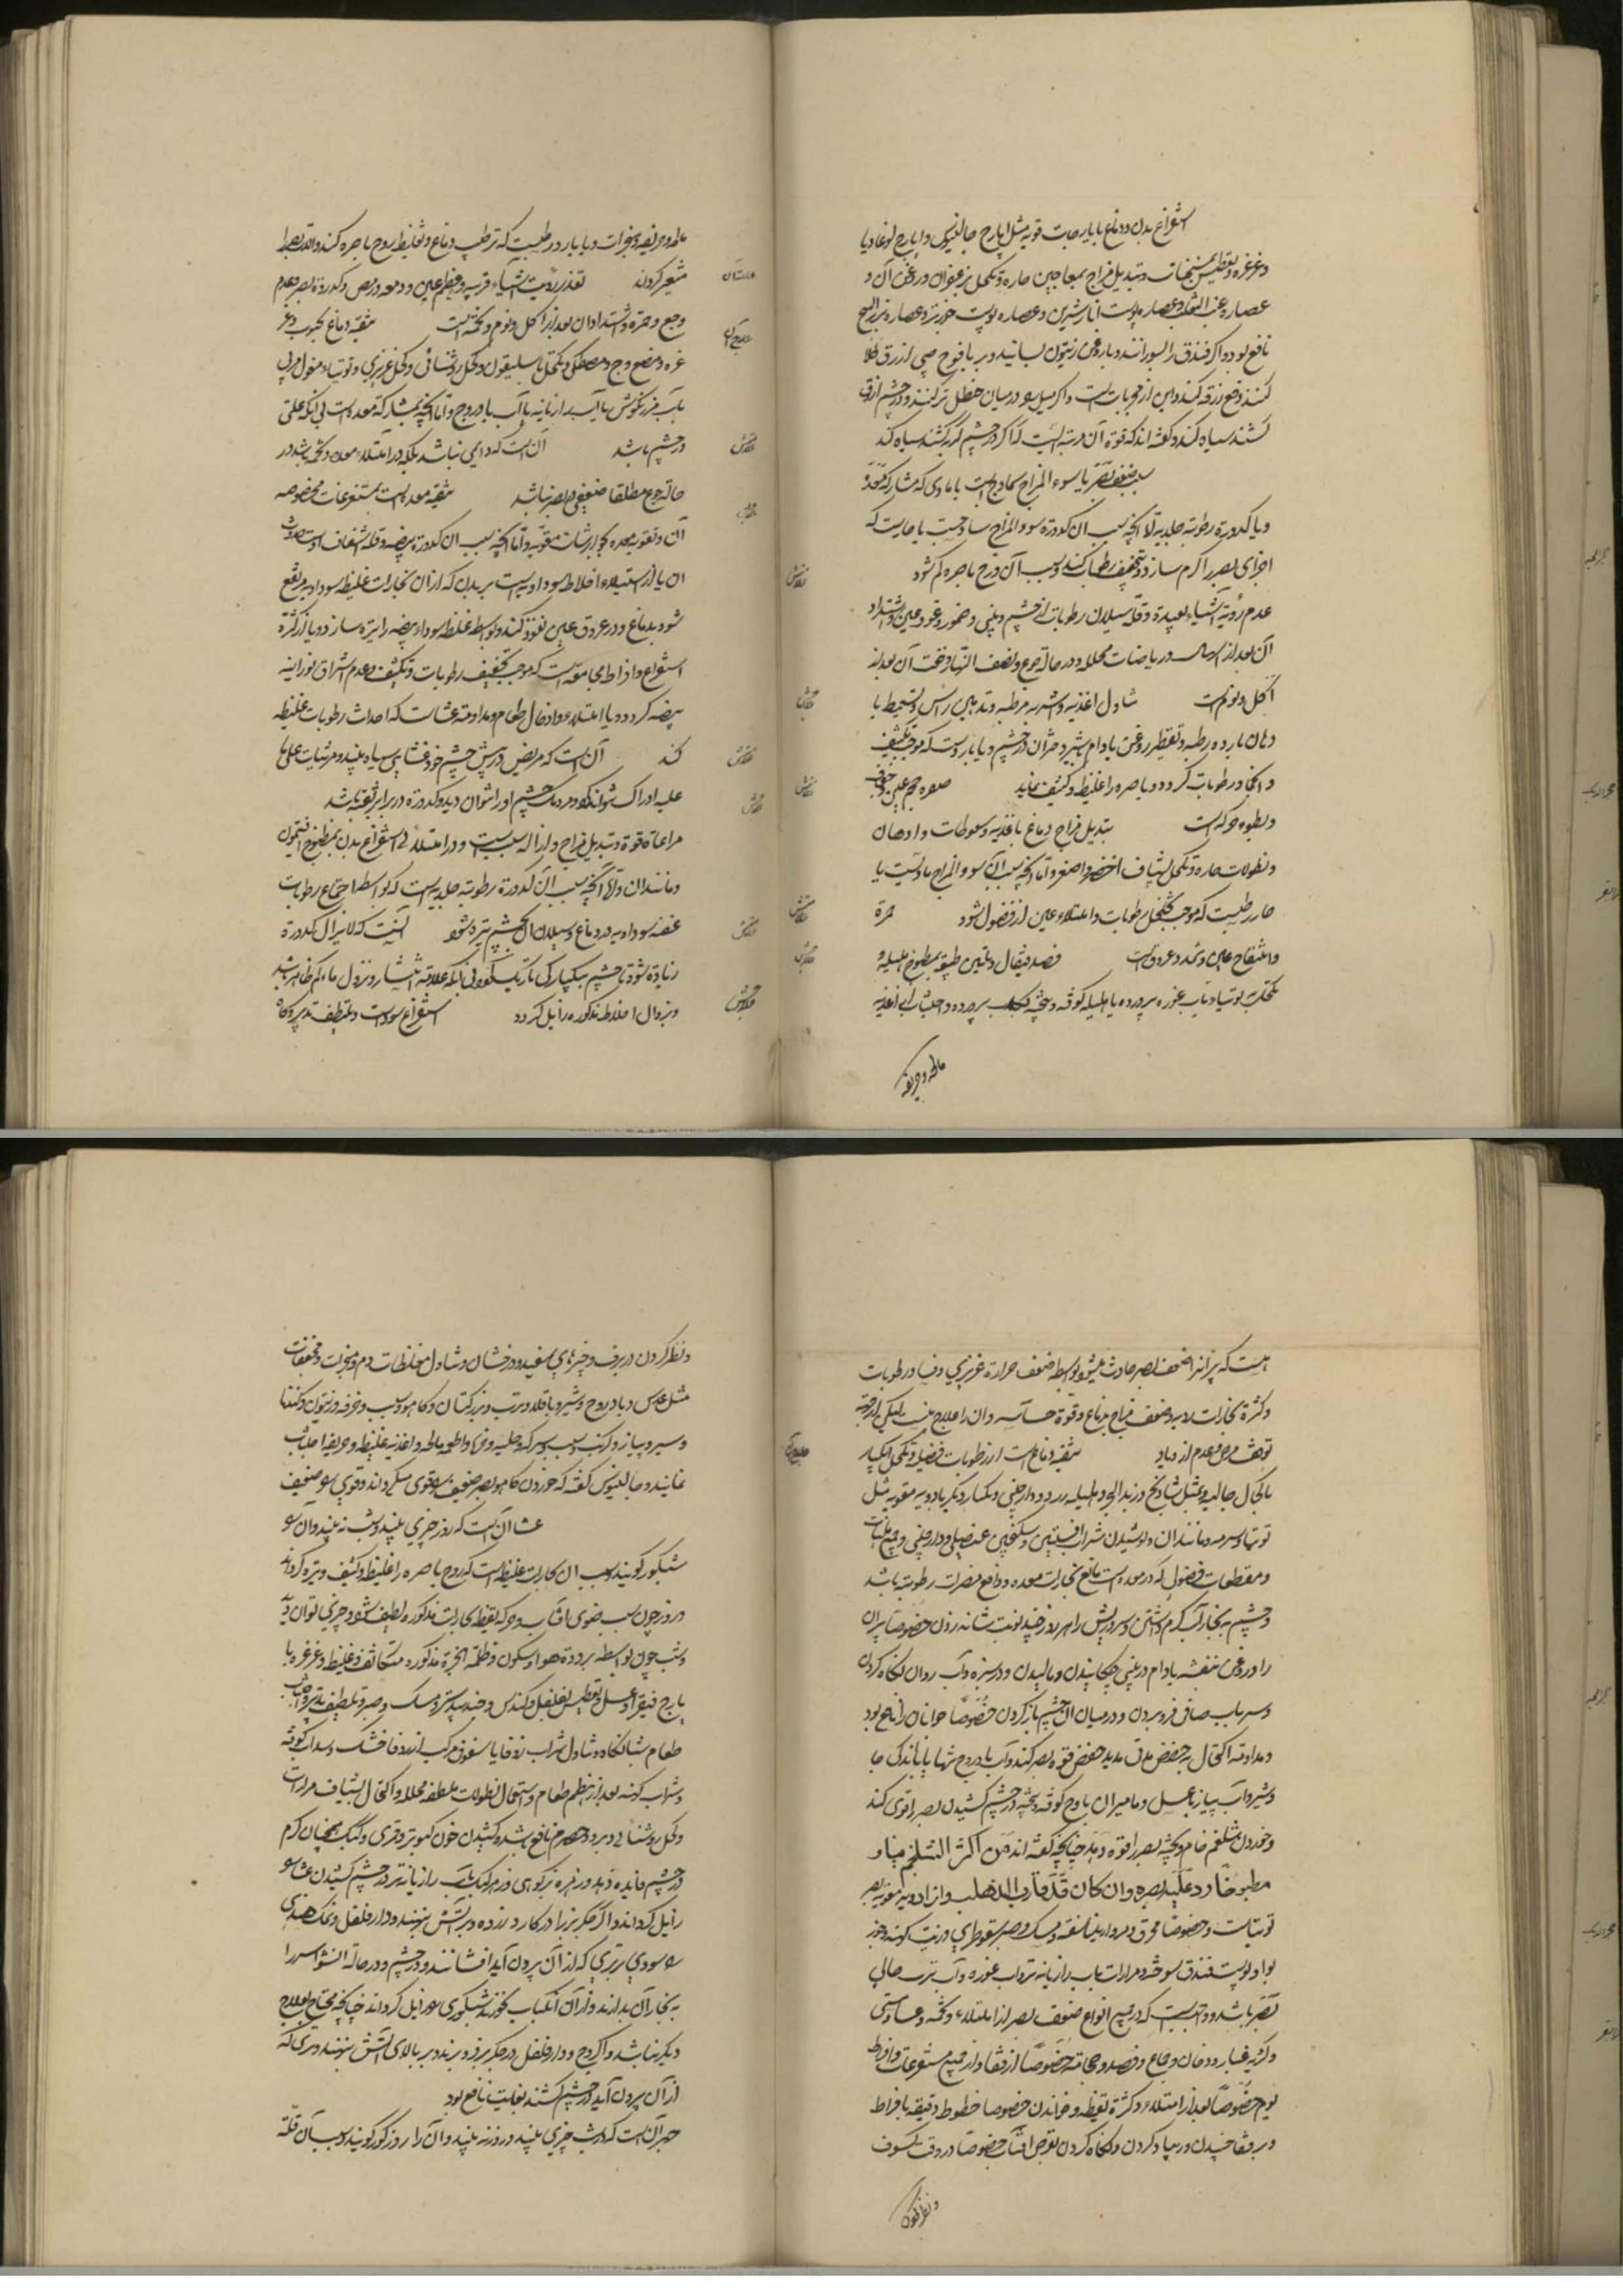 استفراغ بدن و دماغ بایارجات قویه مثل ایارج جالینوس و ایارج لوغاذیا
و غرغره و تعطیس و تبدیل مزاج بمعاجین حاره و تکحل بزعفران و روغن آن و
عصاره عنب الثعلب و عصاره پوست انار شیرین و عصاره پوست خو زتر و عصاره بزر البنج
نافع بود و اگر فندق را بسوزانند و با روغن زیتون بسایند و بر یافوخ صبی ازرق طلا
کنند دفع زرقه کند و این از مجربات است و اگر میل در میان حنظل تر کنند و در چشم ازرق
کشند سیاه کند و گفته اند که قوة آن بمرتبه ایست که اگر در چشم گربه کشند سیاه کند
سبب ضعف بصر یا سوء المزاج ساذج است یا مادی که مشارکة معده
و یا کدورة رطوبة جلیدیة اما آنچه سبب آن کدورة سوء المزاج ساذجست یا حاریست که
اجزای بصر را گرم سازد و تجفیف رطوبات کند و بسبب آن روح باصره کم شود
عدم رؤیة اشیاء بعیدة و قلة سیلان رطوبات از چشم و بینی و ضمور و غور عین و اشتداد
آن بعد از اسهال و ریاضات محلله و در حالة جوع و نصف النهار و خفت آن بعد از
اکل و نوم است تناول اغذیه و اشربه مرطبه و تدهین راس و تسعیط با
دهان بارده رطبه و تقطیر روغن بادام و شیر دختران در چشم و یا باردست که موجب تکثیف
و انجماد رطوبات گردد و باصره را غلیظ و کثیف نماید صغر حجم عین و
و بطوء حرکة است تبدیل مزاج دماغ باغذیه و سعوطات و ادهان
و نطولات حاره و تکحل بشیاف اخضر و اصفر و اما آنچه سبب آن سوء المزاج مادیست یا
حار رطبست که موجب تخلخل رطوبات و امتلاء عین از فضول شود حمرة
و انتفاخ عین و تمدد عروق است فصد قیفال و تلیین طبیعه بمطبوخ هلیله و
تکحل به توتیا و بآب غوره پرورده یا هلیله کوفته و بیخته پرورده و اجتناب از اغذیه
مالحه و حریفه
مالحه و حریفه و مبخرات و یا بارد رطبست که ترطیب دماغ و تغلیظ روح باصره کند و آلة بصر را
متغیر گرداند تعذر رؤیت اشیاء قریبه و عظم عین و دمعه و رمص و کدورة بصر و عدم
وجع و حمرة و اشتداد آن بعد از اکل و نوم و تخمه است تنقیه دماغ بحبوب و غر
غره و مضغ وج و مصطکی و تکحل باسلیقون و کحل روشنائی و کحل عزیزی و توتیاء مغسول مربی
بآب مرزنگوش یا آب رازیانه یا آب بادروج و اما آنچه بمشارکة معده است بی آنکه علتی
در چشم باشد آن است که دایمی نباشد بلکه در امتلاء معده و تخمه باشد و در
حالة جوع مطلقا ضعیفی در بصر نباشد تنقیه معده است بمستفرغات مخصوصه
آن و تقویة معده بجوارشات مقویه و اما آنچه سبب آن کدورة بیضیه و قلة اشفاف اوست حدوث
آن یا از استیلاء اخلاط سوداویه است بر بدن که از آن بخارات غلیظه سوداویه مرتفع
شود بدماغ و در عروق عین نفوذ کند و بواسطه غلظ سوداء بیضیه را تیره سازد و یا از کثرة
استفراغ و افراط مجامعة است که موجب تجفیف رطوبات و تکثیف و عدم اشراق نورانیه
بیضیه گردد و یا امتلاء و ادخال طعام و مداومة عشاست که احداث رطوبات غلیظه
کند آن است که مریض در پیش چشم خود غشایی سیاه بیند و مرئیات علی ما
علیه ادراک نتواند کرد و مردمک چشم او را نتوان دید و کدورة در برابر ثقبه باشد
مراعاة قوة و تبدیل مزاج و ازاله سبب است و در امتلائی استفراغ بدن بمطبوخ افتیمون
و مانند آن و اما آنچه سبب آن کدورة رطوبة جلیدیه است که بواسطه اجتماع رطوبات
عفنه سوداویه در دماغ و سیلان آن چشم تیره شود آنست که لایزال کدورة
زیادة شود تا چشم بیکبارگی تاریک گردد بی آنکه علامة انتشار و نزول ماء کم ظاهر باشد
و بزوال اخلاط مذکوره زایل گردد استفراغ سوداست و تلطیف تدبیر و گاه
هست که پیران را ضعف بصر حادث میشود بواسطه ضعف حرارة غریزی و فساد رطوبات
و کثرة بخارات لابد و ضعف مزاج دماغ و قوة حساسه و آن را علاج نیست لیکن از جهة
توقف مرض و عدم ازدیاد تنقیه دماغ است از رطوبات فضلیه و تکحل
بالحال جالیه مثل شادنج و زبد البحر و هلیله زرد و دارچینی و یکبار دیگر بادویه مقویه مثل
توتیا و سرمه و مانند آن و نوشیدن شراب افسنتین و سکنجبین عنصلی و دارچینی و جمیع ملینات
و مقطعات فضول که در معده است مانع بخارات معده و دافع مضرات رطوبته باشد
و چشم به بخار آب گرم داشتن و سر و ریش را هر روز چند نوبت شانه زدن خصوصا پیران
را و روغن بنفشه بادام در بینی چکانیدن و مالیدن و در سبزه و آب روان نگاه کردن
و سر بآب صاف فرو بردن و در میان آن چشم باز کردن خصوصا جوانان را نافع بود
و مداومة اکتحال به حضض مدتی مدید حفظ قوة بصر کند و آب بادروج تنها یا با
و شیره آب پیاز با عسل و مامیران با وج کوفته و بیخته در چشم کشیدن بصر را قوی کند
و خوردن شلغم خام و پخته بصر را قوة دهد چنانچه گفته اند من اکثر الشلجم نیا و
مطبوخا رد علیه بصره و ان کان قد قارب الذهاب و از ادویه مقویه بصر
توتیاست و خصوصا محرق و مروارید ناسفته و مسک و صبر سقوطری و زیت کهنه و جوز
بوا و پوست فندق سوخته و مرارات بآب رازیانه تر و آب غوره و آب ترب جالی
بصر باشد و واجبست که در همه انواع ضعف بصر از امتلاء و تخمه و عشا و مستی
و گریه و غبار و دخان و جماع و فصد و حجامة خصوصا از قفا و از جمیع مستفرغات و افراط
نوم خصوصا بعد از امتلاء و کثرة یقظه و خواندن خصوصا خطوط دقیقه بافراط
و بر قفا خسپیدن و نگاه کردن بقرص آفتاب خصوصا در وقت کسوف
و نظر کردن
و نظر کردن در برف و چیزهای سفید و درخشان و تناول مغلظات دم و مبخرات و مجففات
مثل عدس و بادروج و شبت و باقلا و ترب و بزر کتان و کاهو و شبت و خرفه و زیتون و گندنا
و سیر و پیاز و کرنب و سرکه و حلبه و اطعمه مالحه و اغذیه غلیظه و حریفه اجتناب
نمایند و جالینوس گفته که خوردن کاهو بصر ضعیف را قوی میگرداند و قوی را ضعیف
عشا آن است که روز چیزی بیند و شب نه بیند و آن را
شبکور گویند و سبب آن بخارات غلیظ است که روح باصره را غلیظ و کثیف و تیره گرداند
در روز چون بسبب ضوی آفتاب و حرکة یقظه بخارات مذکوره لطیف شود چیزی توان دید
و شب چون بواسطه برودة هوا و سکون و ظلمة ابخرة مذکوره متکاثف و غلیظ و غرغره با
یارج فیقرا و عسل و تعطیس بفلفل و کندس و جندبیدستر و مسک و صبر و تلطیف تدبیر و اجتناب
طعام شبانگاه و تناول شراب زوفا یا سفوف مرکب از زوفا خشک و سداب کوفته
و شراب کهنه بعد از هضم طعام و استعمال نطولات ملطفه محلله و اکتحال بشیاف مرارات
و کحل روشنائی و برود حصرم نافع باشد و کشیدن خون کبوتر و قمری و کبک همچنان گرم
در چشم فایده دهد و زهره بز کوهی و زهره کبک بآب رازیانه تر در چشم کشیدن عشا را
زایل گرداند و اگر جگر بز را در کارد زده و بر آتش نهند و دارفلفل و نمک هندی
سوده بر تری که از آن بیرون آید افشانند و در چشم و در حالة النشو سر را
به بخار آن بدارند و از آن کباب بخورند شبکوری را زایل گرداند چنانچه محتاج بعلاج
دیگر نباشد و اگر وج و دارفلفل در جگر بز فرو برند و بر بالای آتش نهند و تری که
از آن بیرون آید در چشم کشند بغایت نافع بود
جهر آن است که در شب چیزی بیند و در روز نه بیند و آن را روزکور گویند و سبب آن قلة